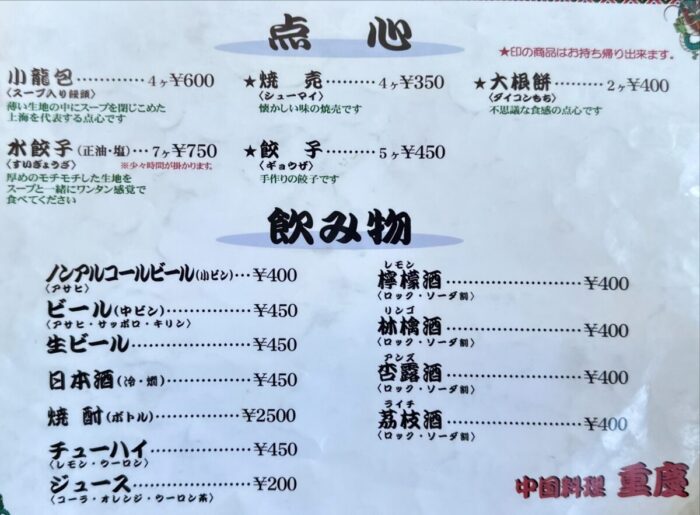 点心
★印の商品はお持ち帰り出来ます。
小龍包………4ヶ¥600
〈スープ入り饅頭〉
薄い生地の中にスープを閉じこめた
上海を代表する点心です
★焼売………4ヶ¥350
〈シューマイ〉
懐かしい味の焼売です
★大根餅………2ヶ¥400
〈ダイコンもち〉
不思議な食感の点心です
水餃子(正油・塩)…7ヶ¥750
〈すいぎょうざ〉 ※少々時間が掛かります。
厚めのモチモチした生地を
スープと一緒にワンタン感覚で
食べてください
★餃子………5ヶ¥450
〈ギョウザ〉
手作りの餃子です
飲み物
ノンアルコールビール(小ビン)…¥400
〈アサヒ〉
ビール(中ビン)………¥450
〈アサヒ・サッポロ・キリン〉
生ビール………¥450
日本酒(冷・燗)………¥450
焼酎(ボトル)………¥2500
チューハイ………¥450
〈レモン・ウーロン〉
ジュース………¥200
〈コーラ・オレンジ・ウーロン茶〉
レモン
檸檬酒………¥400
〈ロック・ソーダ割〉
リンゴ
林檎酒………¥400
〈ロック・ソーダ割〉
アンズ
杏露酒………¥400
〈ロック・ソーダ割〉
ライチ
茘枝酒………¥400
〈ロック・ソーダ割〉
中国料理 重慶